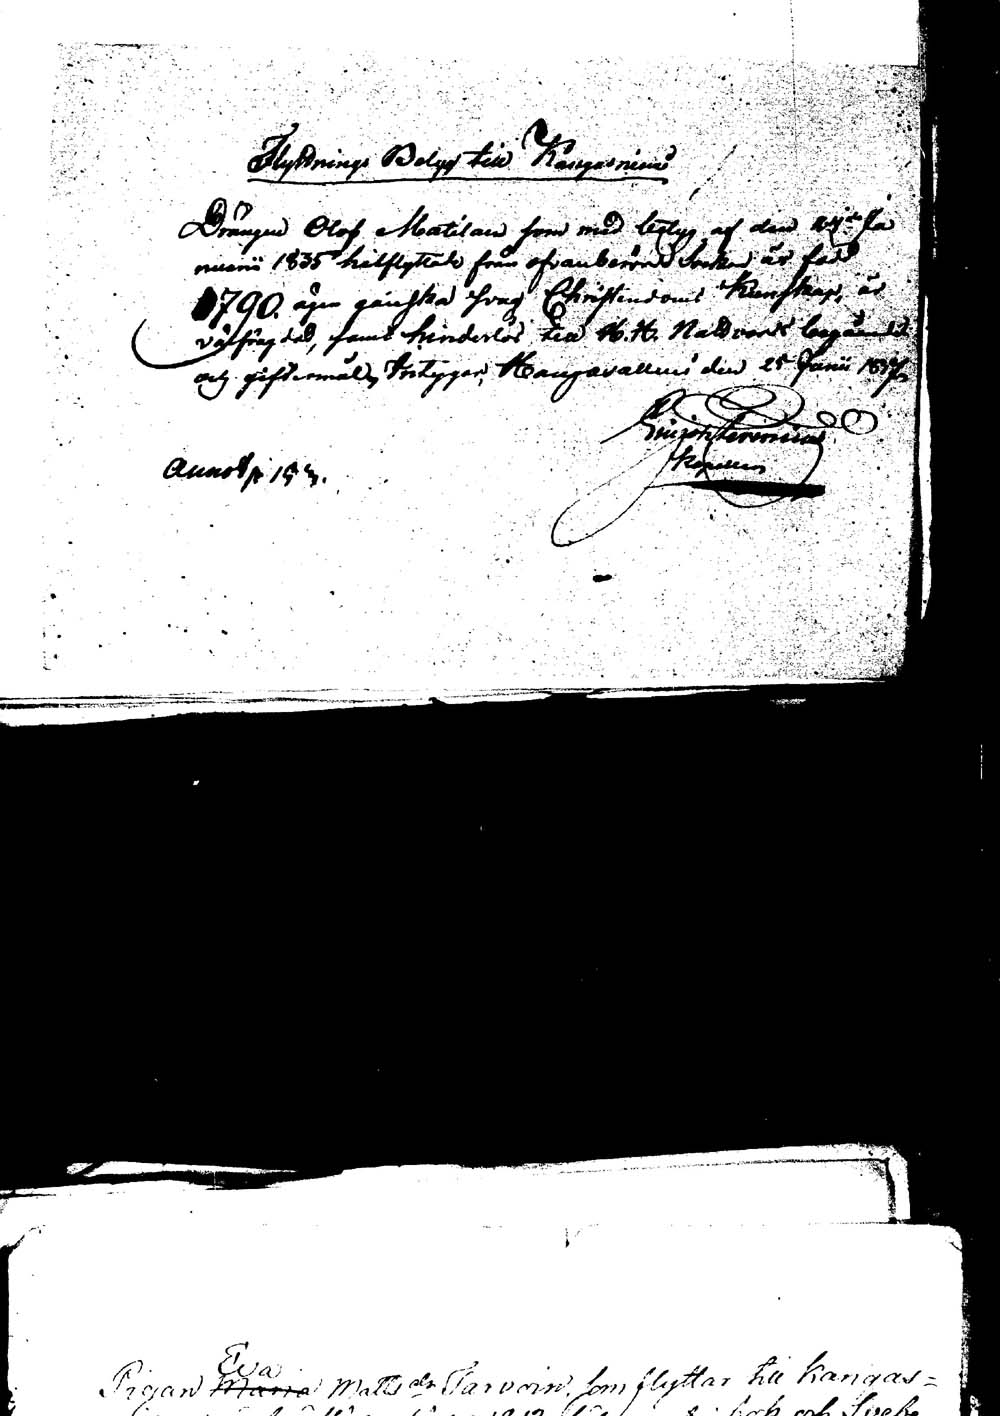 Flyttnings Betyg till Kangasniemi
Drängen Olof Matilain som med betyg af den 24de Ja
nuarii 1835 hitflyttade från ofvanberörde Socken är född
1790. äger ganska svag Christendoms Kunskap, är
välfrägdad, samt hinderlös till H. H. Nattvards begående
och giftermål, Intygar, den 25 Junii 1837
Kapellan
Pigan Eva Maria Matts dr Tarvain, som flyttar till Kangas=